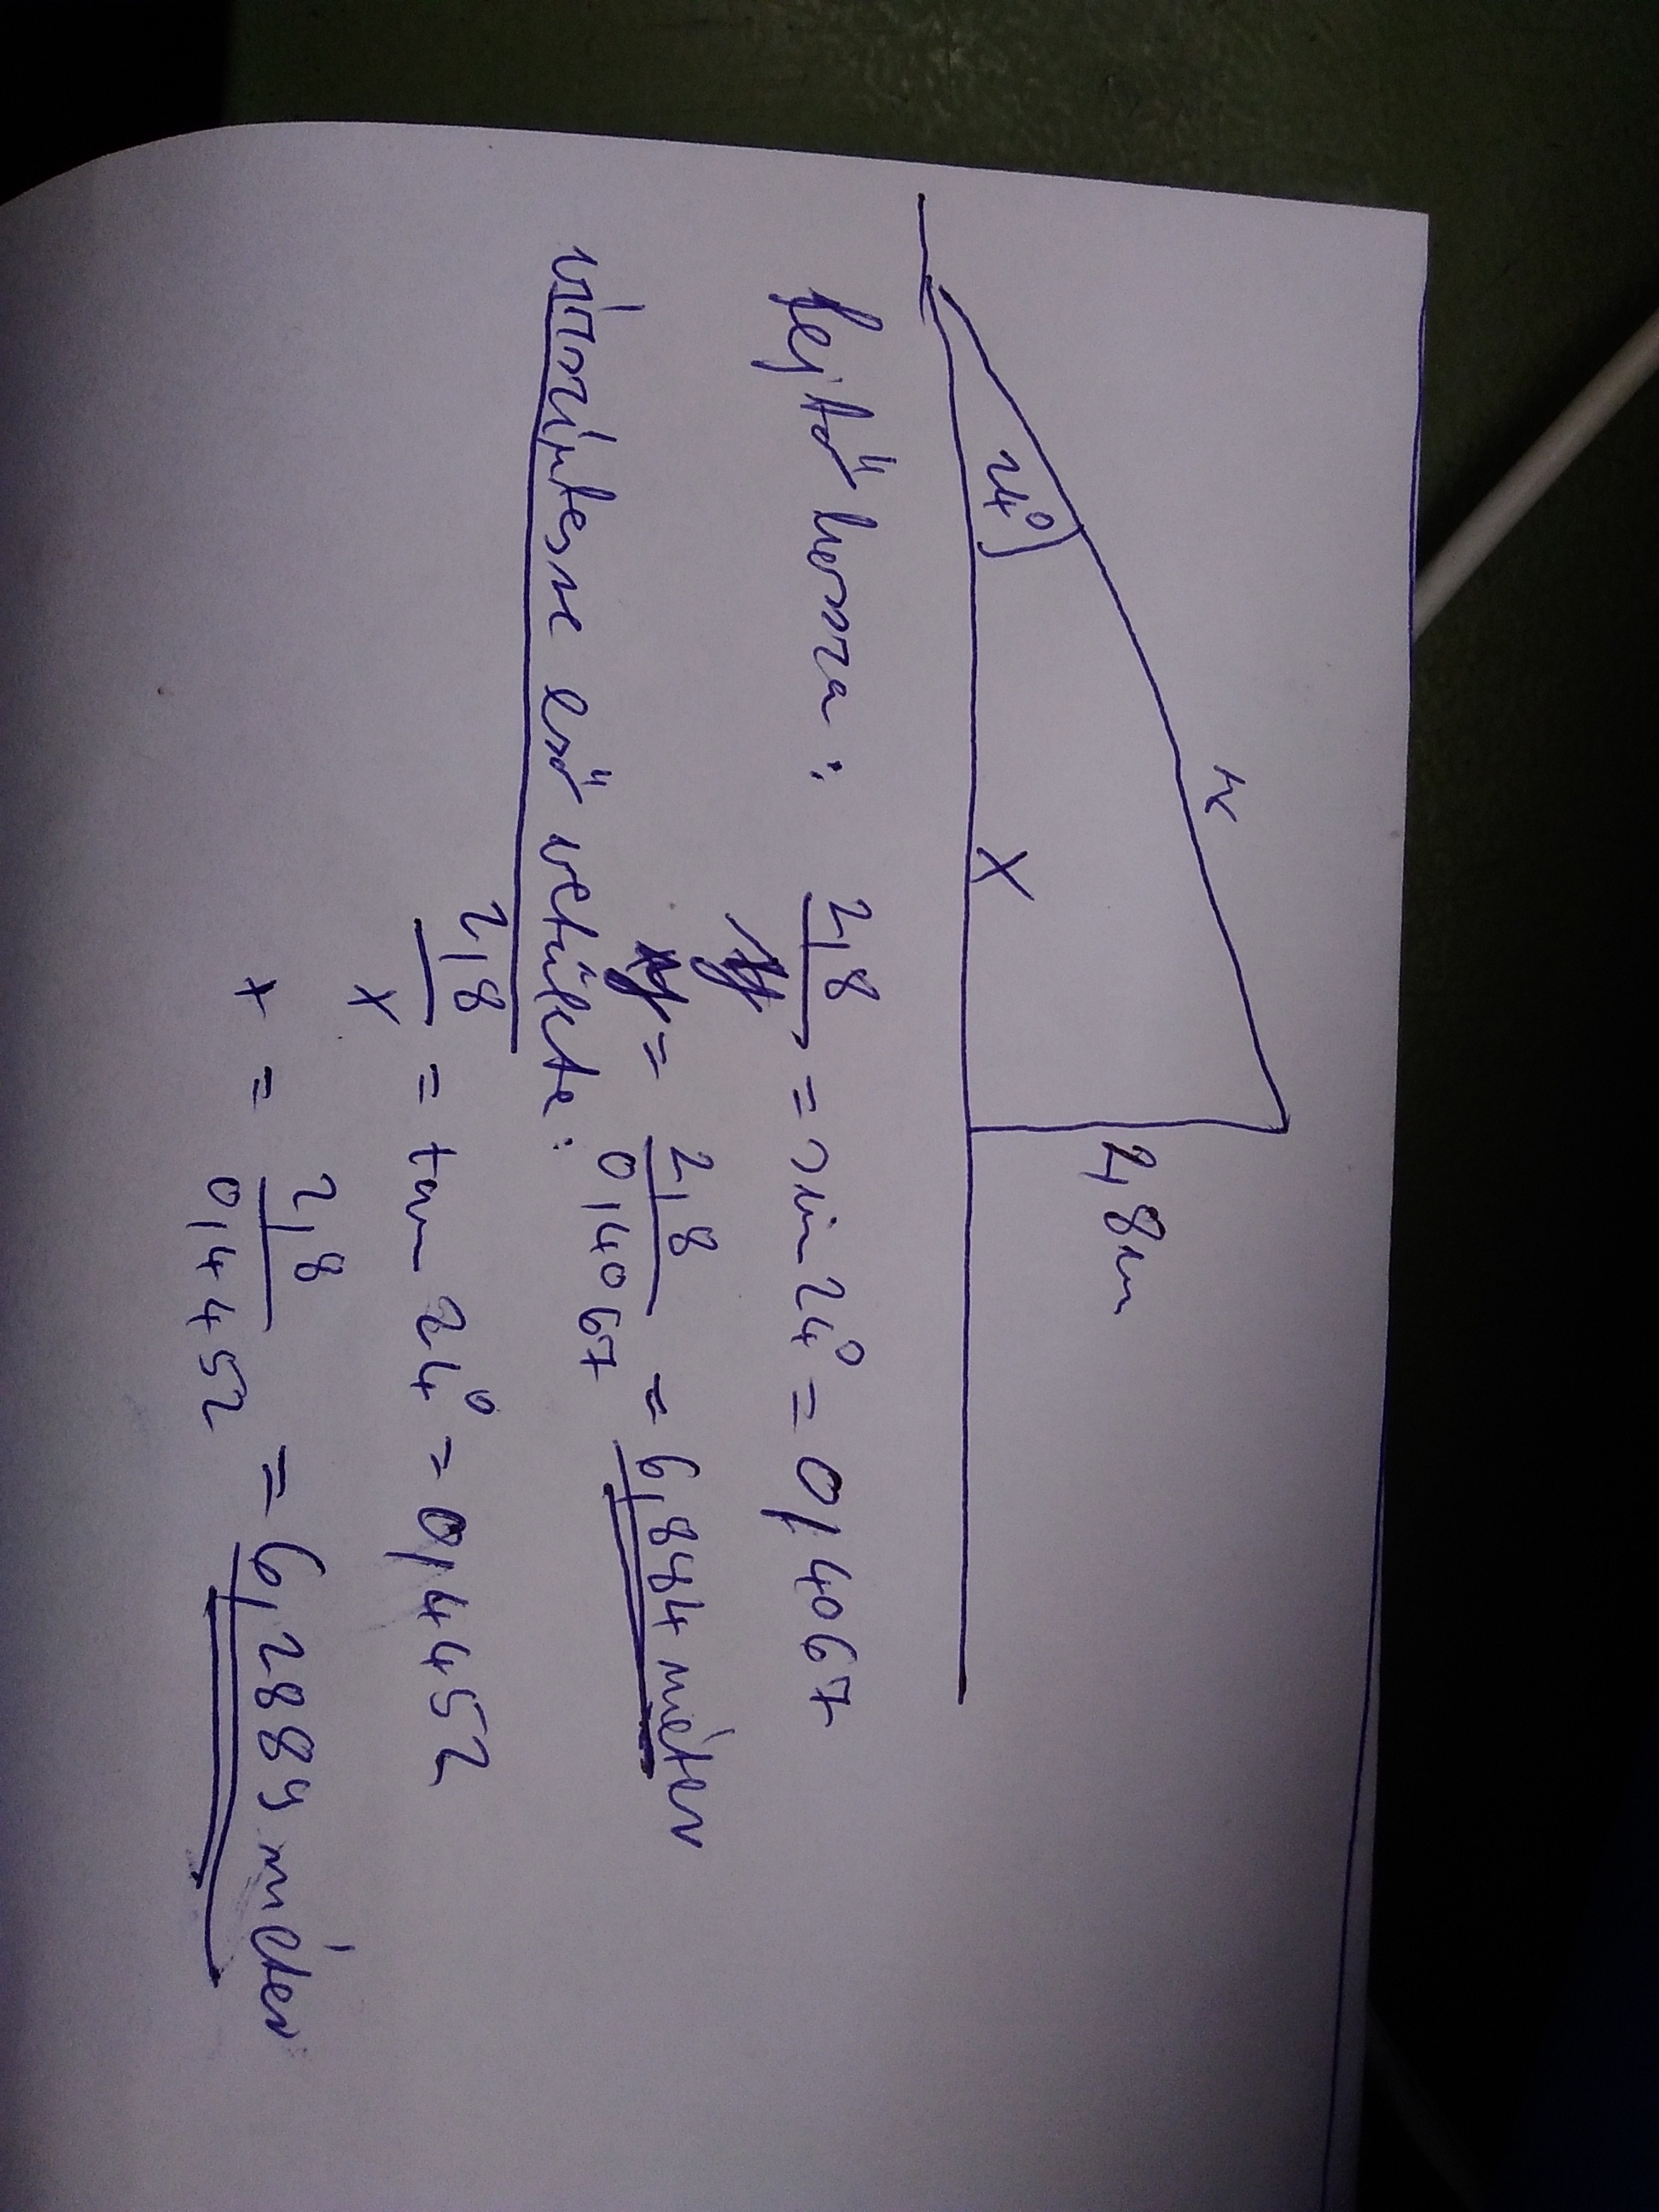 24°
x
2,8m
lejtő hossza: 2,8 / y = sin 24° = 0,4067
y = 2,8 / 0,4067 = 6,884 méter
vízszintesre eső vetülete:
2,8 / x = tan 24° = 0,4452
x = 2,8 / 0,4452 = 6,2889 méter